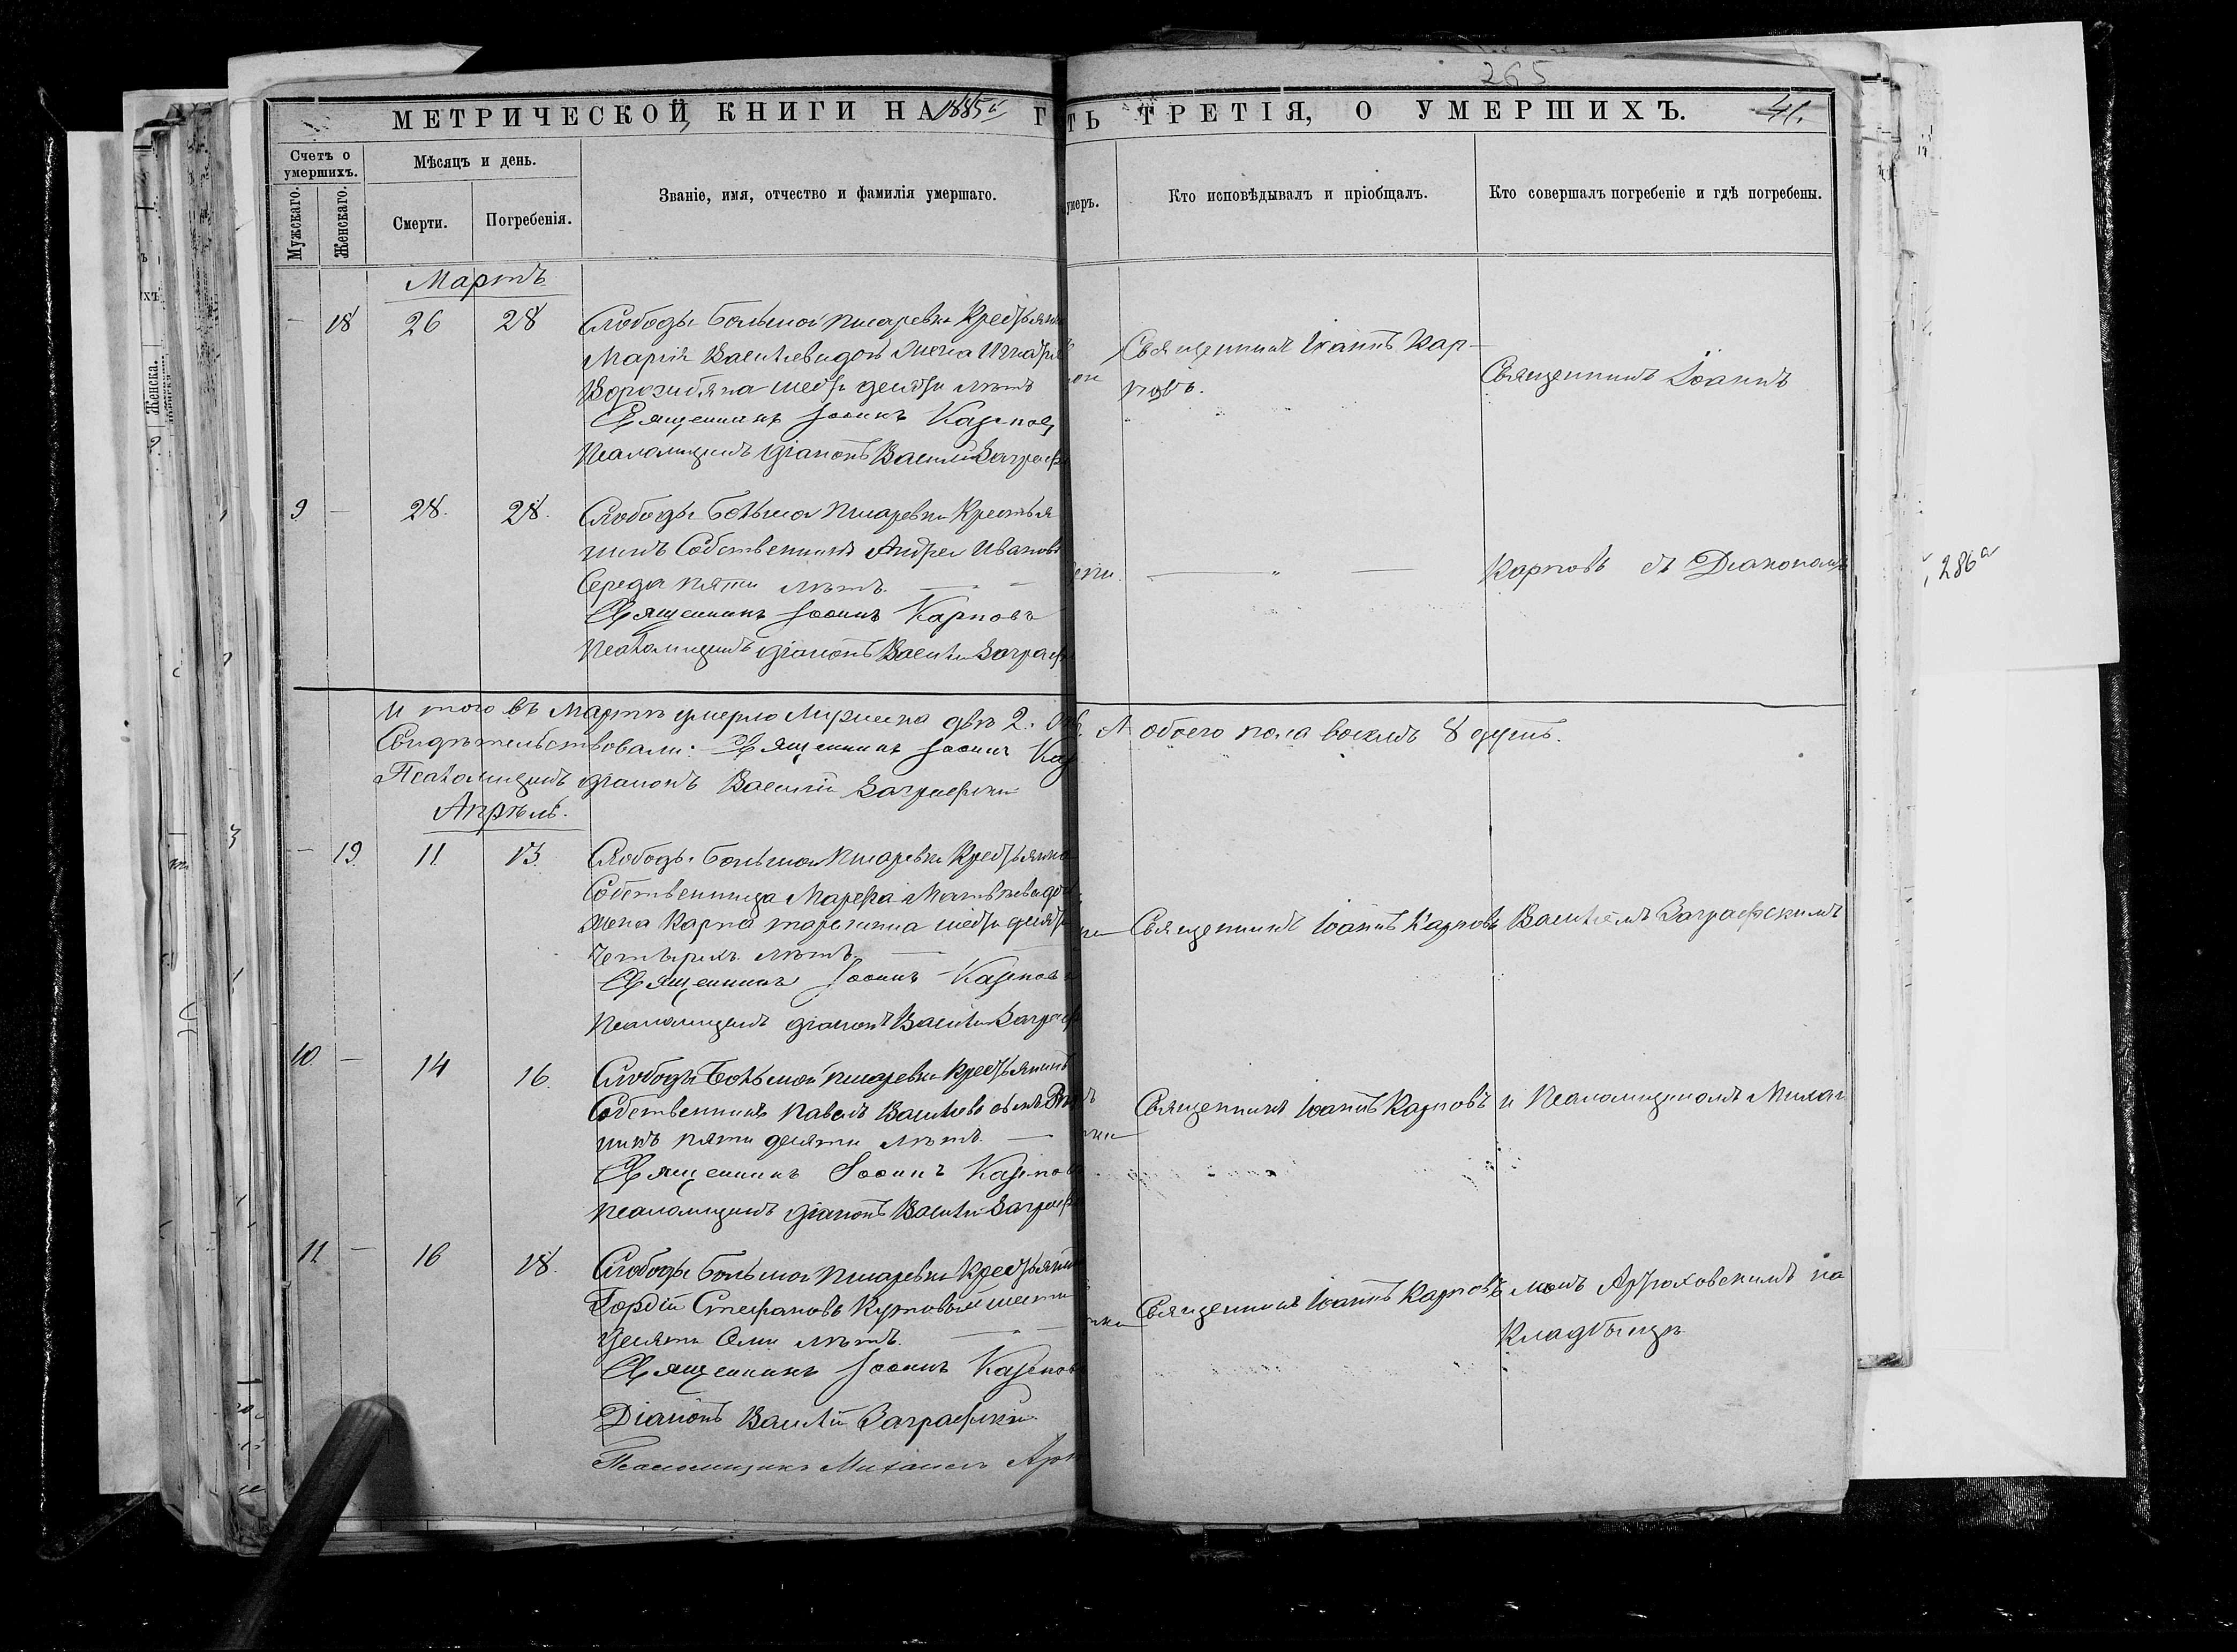 265
МЕТРИЧЕСКОЙ КНИГИ НА 1885й Г
ТЬ ТРЕТІЯ, О УМЕРШИХЪ. 41.
Счетъ о умершихъ.
Мужскаго.
Женскаго.
Мѣсяцъ и день.
Смерти.
Погребенія.
Званіе, имя, отчество и фамилія умершаго.
умеръ.
Кто исповѣдывалъ и пріобщалъ.
Кто совершалъ погребеніе и гдѣ погребены.
Мартъ
— 18 26 28 Слободы Большой Писаревки Крестьянка
Марія Васильева дочь Жена
шестьдесятъ лѣтъ
Священникъ Іоаннъ Карповъ
Псаломщикъ діаконъ Василій Заграфск
Священникъ Іоаннъ Кар-
повъ.
Священникъ Іоаннъ
9 — 28. 28. Слободы Большой Писаревки Крестья
нинъ Собственникъ Андрей Ивановъ
Середа пяти лѣтъ. —
Священникъ Іоаннъ Карповъ
Псаломщикъ діаконъ Василій Заграфск
— " —
Карповъ съ Діакономъ
286а
И того въ Мартѣ умерло Мужеска два 2.
А обоего пола восемь 8 душъ.
Свидѣтельствовали: Священникъ Іоаннъ Кар
Псаломщикъ діаконъ Василій Заграфскій
Апрѣль.
— 19. 11. 13. Слободы Большой Писаревки Крестьянка
Собственница Марфа Матвѣева доч
жена Карпа шестьдесят
Четырехъ лѣтъ —
Священникъ Іоаннъ Карповъ
Псаломщикъ діаконъ Василій Заграф
Священникъ Іоаннъ Карповъ
Василіемъ Заграфскимъ
10. — 14 16. Слободы Большой Писаревки Крестьянинъ
Собственникъ Павелъ Васильевъ сынъ
никъ пяти десяти лѣтъ. —
Священникъ Іоаннъ Карповъ
Псаломщикъ діаконъ Василій Заграф
Священникъ Іоаннъ Карповъ
и Псаломщикомъ Михаи
11 — 16 18. Слободы Большой Писаревки Крестьянин
Гордій Стефановъ шести
десяти Семи лѣтъ. —
Священникъ Іоаннъ Карповъ
Діаконъ Василій Заграфскій
Псаломщикъ Михаилъ
Священникъ Іоаннъ Карповъ
ломъ на
Кладбищѣ.